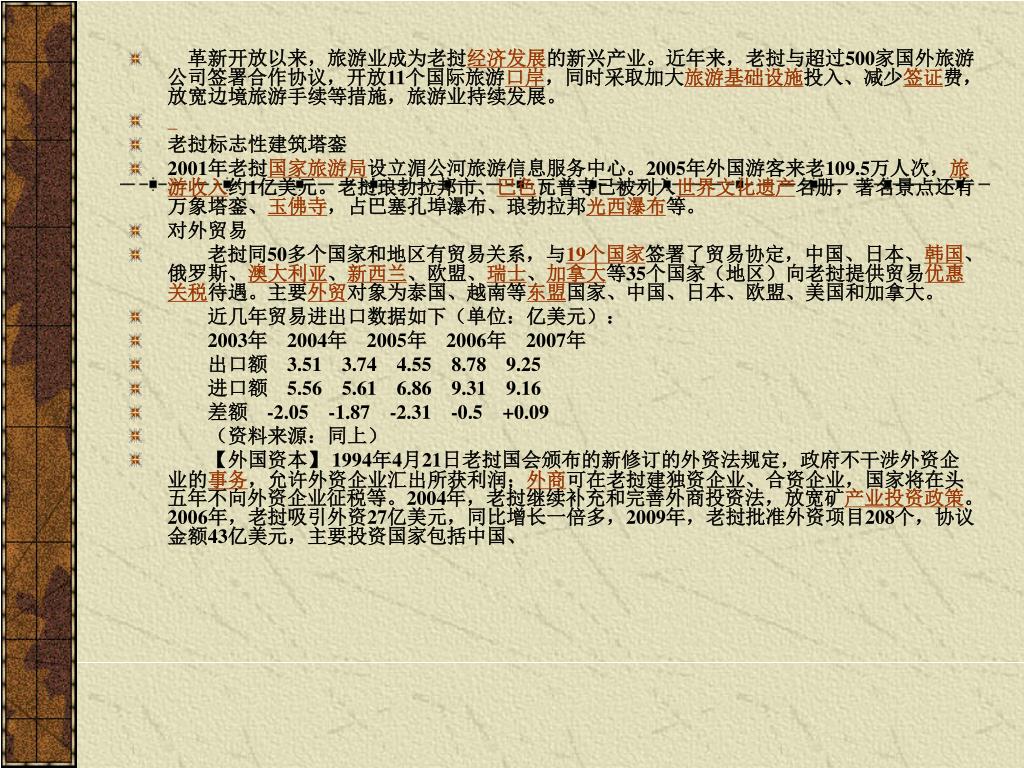 革新开放以来，旅游业成为老挝经济发展的新兴产业。近年来，老挝与超过500家国外旅游
公司签署合作协议，开放11个国际旅游口岸，同时采取加大旅游基础设施投入、减少签证费，
放宽边境旅游手续等措施，旅游业持续发展。
老挝标志性建筑塔銮
2001年老挝国家旅游局设立湄公河旅游信息服务中心。2005年外国游客来老109.5万人次，旅
游收入约1亿美元。老挝琅勃拉邦市、巴色瓦普寺已被列入世界文化遗产名册，著名景点还有
万象塔銮、玉佛寺，占巴塞孔埠瀑布、琅勃拉邦光西瀑布等。
对外贸易
老挝同50多个国家和地区有贸易关系，与19个国家签署了贸易协定，中国、日本、韩国、
俄罗斯、澳大利亚、新西兰、欧盟、瑞士、加拿大等35个国家（地区）向老挝提供贸易优惠
关税待遇。主要外贸对象为泰国、越南等东盟国家、中国、日本、欧盟、美国和加拿大。
近几年贸易进出口数据如下（单位：亿美元）：
2003年 2004年 2005年 2006年 2007年
出口额 3.51 3.74 4.55 8.78 9.25
进口额 5.56 5.61 6.86 9.31 9.16
差额 -2.05 -1.87 -2.31 -0.5 +0.09
（资料来源：同上）
【外国资本】 1994年4月21日老挝国会颁布的新修订的外资法规定，政府不干涉外资企
业的事务，允许外资企业汇出所获利润；外商可在老挝建独资企业、合资企业，国家将在头
五年不向外资企业征税等。2004年，老挝继续补充和完善外商投资法，放宽矿产业投资政策。
2006年，老挝吸引外资27亿美元，同比增长一倍多，2009年，老挝批准外资项目208个，协议
金额43亿美元，主要投资国家包括中国、